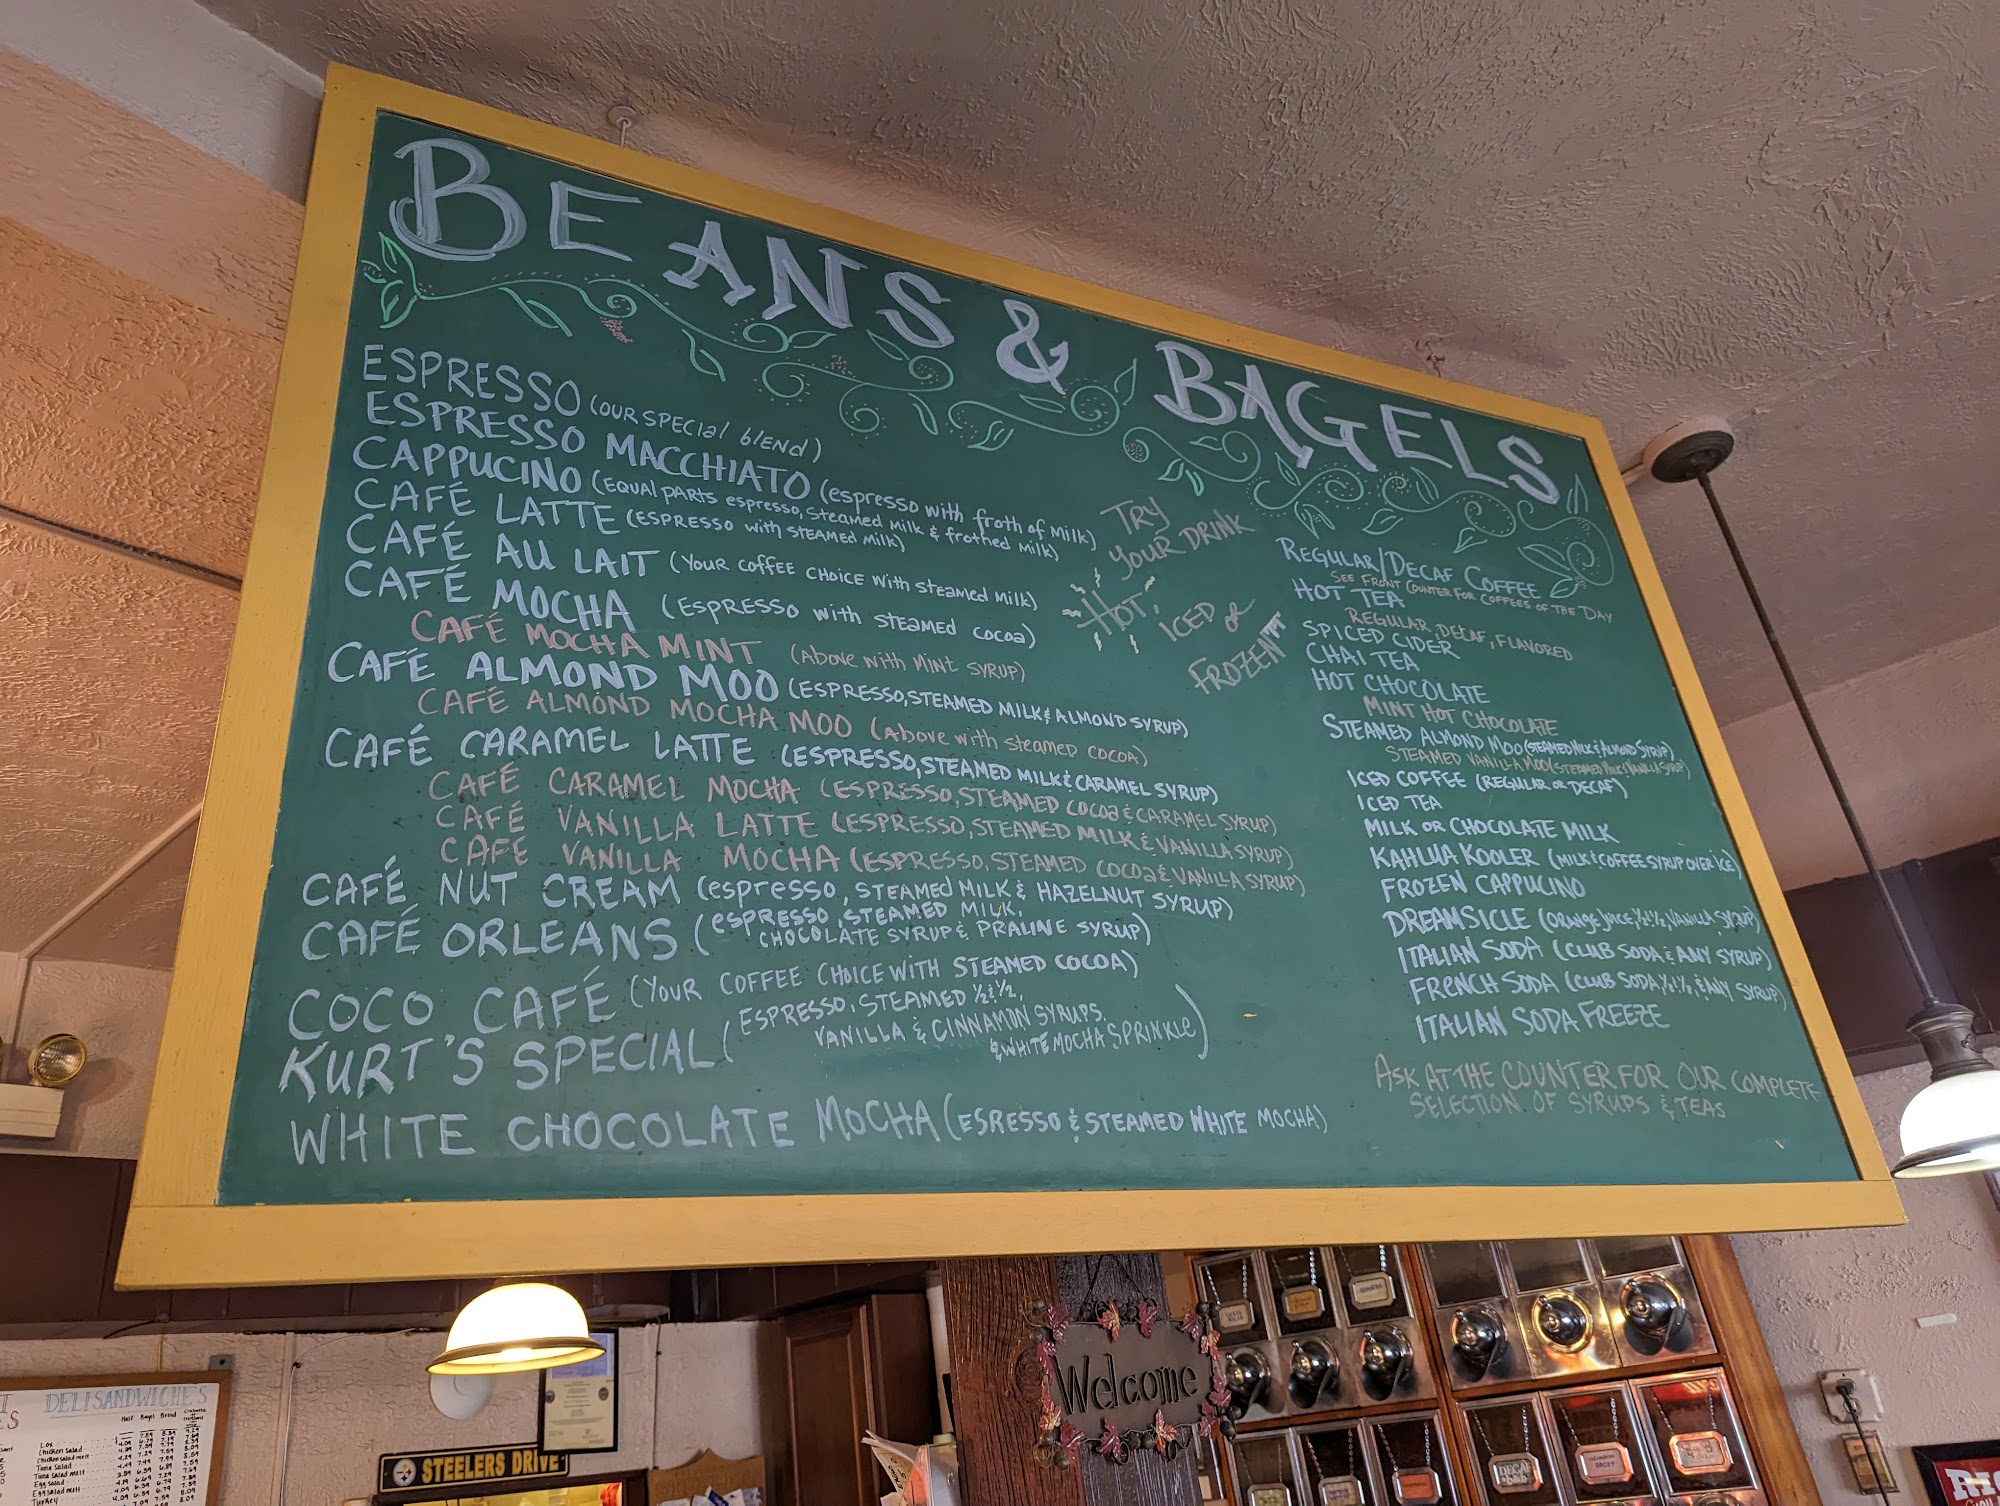 BEANS & BAGELS
ESPRESSO (OUR SPECIAL BLEND)
ESPRESSO MACCHIATO (espresso with froth of Milk)
CAPPUCINO (EQUAL PARTS espresso, Steamed Milk & frothed Milk)
CAFÉ LATTE (ESPRESSO with STEAMED Milk)
CAFÉ AU LAIT (YOUR COFFEE CHOICE with Steamed Milk)
CAFÉ MOCHA (ESPRESSO with STEAMED COCOA)
CAFÉ MOCHA MINT (Above with Mint SYRUP)
CAFÉ ALMOND MOO (ESPRESSO, STEAMED MILK & ALMOND SYRUP)
CAFÉ ALMOND MOCHA MOO (Above with steamed COCOA)
CAFÉ CARAMEL LATTE (ESPRESSO, STEAMED MILK & CARAMEL SYRUP)
CAFÉ CARAMEL MOCHA (ESPRESSO, STEAMED COCOA & CARAMEL SYRUP)
CAFÉ VANILLA LATTE (ESPRESSO, STEAMED MILK & VANILLA SYRUP)
CAFÉ VANILLA MOCHA (ESPRESSO, STEAMED COCOA & VANILLA SYRUP)
CAFÉ NUT CREAM (espresso, STEAMED MILK & HAZELNUT SYRUP)
CAFÉ ORLEANS (ESPRESSO, STEAMED MILK,
CHOCOLATE SYRUP & PRALINE SYRUP)
COCO CAFÉ (YOUR COFFEE CHOICE WITH STEAMED COCOA)
KURT'S SPECIAL (ESPRESSO, STEAMED ½ & ½,
VANILLA & CINNAMON SYRUPS,
& WHITE MOCHA SPRINKLE)
WHITE CHOCOLATE MOCHA (ESRESSO & STEAMED WHITE MOCHA)
TRY
YOUR DRINK
HOT,
ICED or
FROZEN!
REGULAR/DECAF COFFEE
SEE FRONT COUNTER FOR COFFEES OF THE DAY
HOT TEA
REGULAR, DECAF, FLAVORED
SPICED CIDER
CHAI TEA
HOT CHOCOLATE
MINT HOT CHOCOLATE
STEAMED ALMOND MOO (STEAMED MILK & ALMOND SYRUP)
STEAMED VANILLA MOO (STEAMED MILK & VANILLA SYRUP)
ICED COFFEE (REGULAR OR DECAF)
ICED TEA
MILK OR CHOCOLATE MILK
KAHLUA KOOLER (MILK & COFFEE SYRUP OVER ICE)
FROZEN CAPPUCINO
DREAMSICLE (ORANGE JUICE, ½ & ½, VANILLA SYRUP)
ITALIAN SODA (CLUB SODA & ANY SYRUP)
FRENCH SODA (CLUB SODA, ½ & ½, & ANY SYRUP)
ITALIAN SODA FREEZE
ASK AT THE COUNTER FOR OUR COMPLETE
SELECTION OF SYRUPS & TEAS
Welcome
STEELERS DRIVE
DELI SANDWICHES
Half Bagel Bread
Lox
Chicken Salad
Chicken Salad melt
Tuna Salad
Tuna Salad melt
Egg Salad
Egg Salad melt
Turkey
DECAF